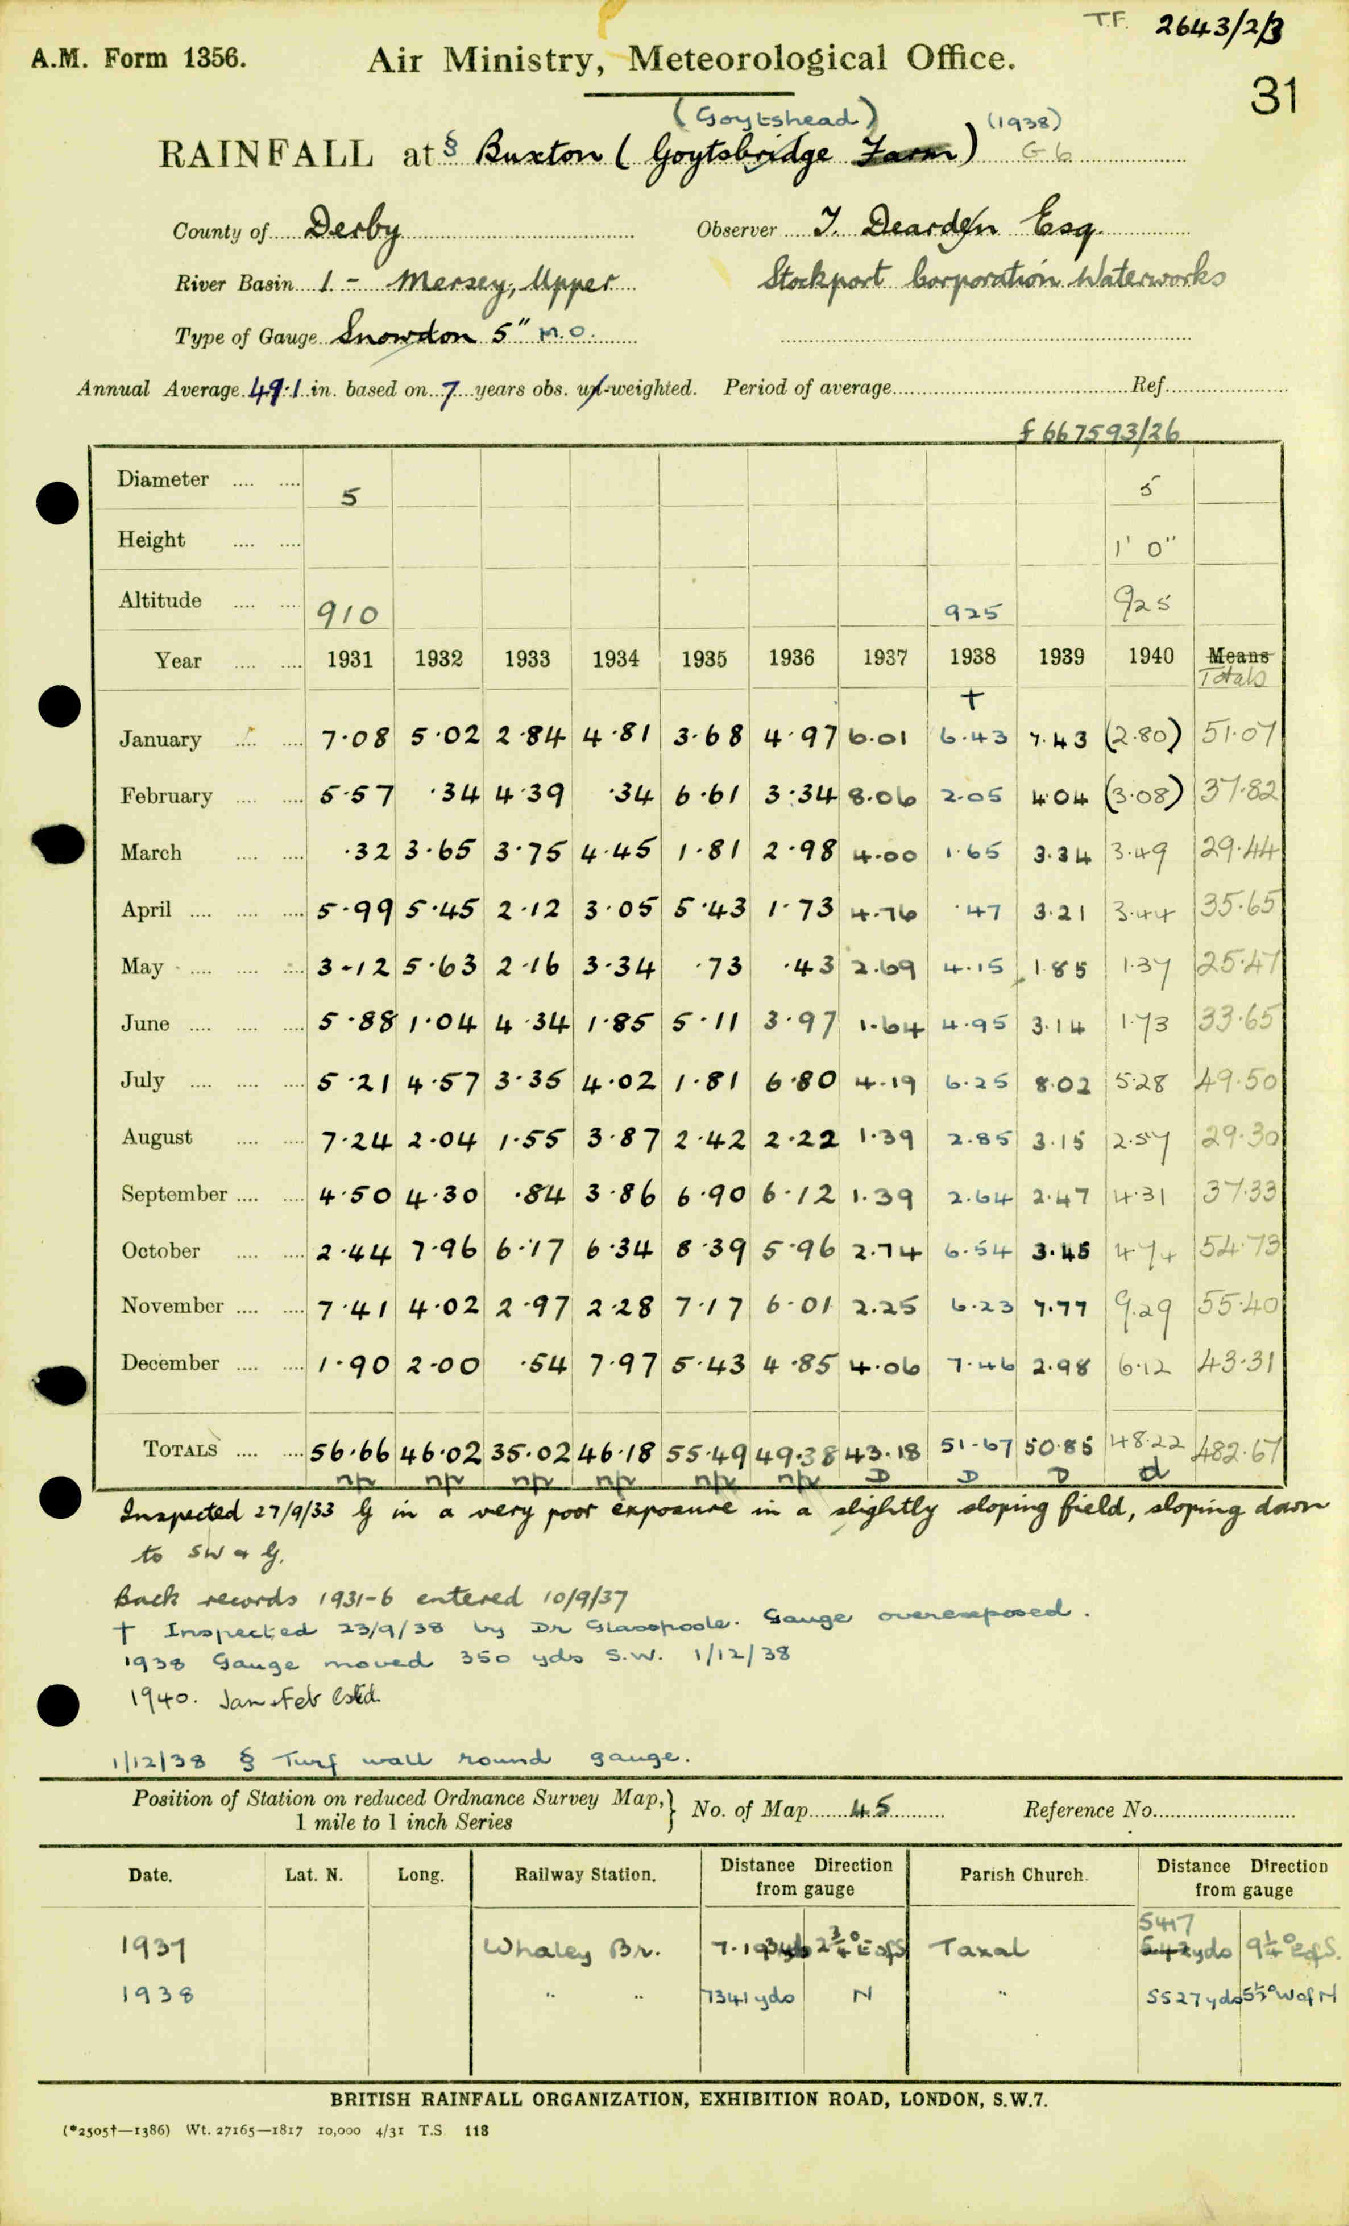 T.F. 2643/2/3
A.M. Form 1356. Air Ministry, Meteorological Office.
31
(Goytshead) (1938)
RAINFALL at § Buxton (Goytsbridge Farm) G 6
County of Derby Observer T. Dearden Esq.
River Basin 1 - Mersey, Upper Stockport Corporation Waterworks
Type of Gauge Snowdon 5" M.O.
Annual Average 49.1 in. based on 7 years obs. un-weighted. Period of average Ref.
f 667593/26
Diameter 5 5
Height 1' 0"
Altitude 910 925 925
Year 1931 1932 1933 1934 1935 1936 1937 1938 1939 1940 Means
Totals
†
January 7.08 5.02 2.84 4.81 3.68 4.97 6.01 6.43 7.43 (2.80) 51.07
February 5.57 .34 4.39 .34 6.61 3.34 8.06 2.05 4.04 (3.08) 37.82
March .32 3.65 3.75 4.45 1.81 2.98 4.00 1.65 3.34 3.49 29.44
April 5.99 5.45 2.12 3.05 5.43 1.73 4.76 .47 3.21 3.44 35.65
May 3.12 5.63 2.16 3.34 .73 .43 2.69 4.15 1.85 1.37 25.47
June 5.88 1.04 4.34 1.85 5.11 3.97 1.64 4.95 3.14 1.73 33.65
July 5.21 4.57 3.35 4.02 1.81 6.80 4.19 6.25 8.02 5.28 49.50
August 7.24 2.04 1.55 3.87 2.42 2.22 1.39 2.85 3.15 2.57 29.30
September 4.50 4.30 .84 3.86 6.90 6.12 1.39 2.64 2.47 4.31 37.33
October 2.44 7.96 6.17 6.34 8.39 5.96 2.74 6.54 3.45 4.74 54.73
November 7.41 4.02 2.97 2.28 7.17 6.01 2.25 6.23 7.77 9.29 55.40
December 1.90 2.00 .54 7.97 5.43 4.85 4.06 7.46 2.98 6.12 43.31
TOTALS 56.66 46.02 35.02 46.18 55.49 49.38 43.18 51.67 50.85 48.22 482.67
n/r n/r n/r n/r n/r n/r D D D d
Inspected 27/9/33 G in a very poor exposure in a slightly sloping field, sloping down
to SW of G.
Back records 1931-6 entered 10/9/37
† Inspected 23/9/38 by Dr Glasspoole. Gauge overexposed.
1938 Gauge moved 350 yds S.W. 1/12/38
1940. Jan + Feb Estd.
1/12/38 § Turf wall round gauge.
Position of Station on reduced Ordnance Survey Map, } No. of Map 45 Reference No.
1 mile to 1 inch Series
Date. Lat. N. Long. Railway Station. Distance Direction Parish Church. Distance Direction
from gauge from gauge
5417
1937 Whaley Br. 2¾° E of S Taxal yds 9¼° E of S.
1938 " " 7341 yds N " 5527 yds 5½° W of N
BRITISH RAINFALL ORGANIZATION, EXHIBITION ROAD, LONDON, S.W.7.
(*2505†—1386) Wt. 27165—1817 10,000 4/31 T.S. 118